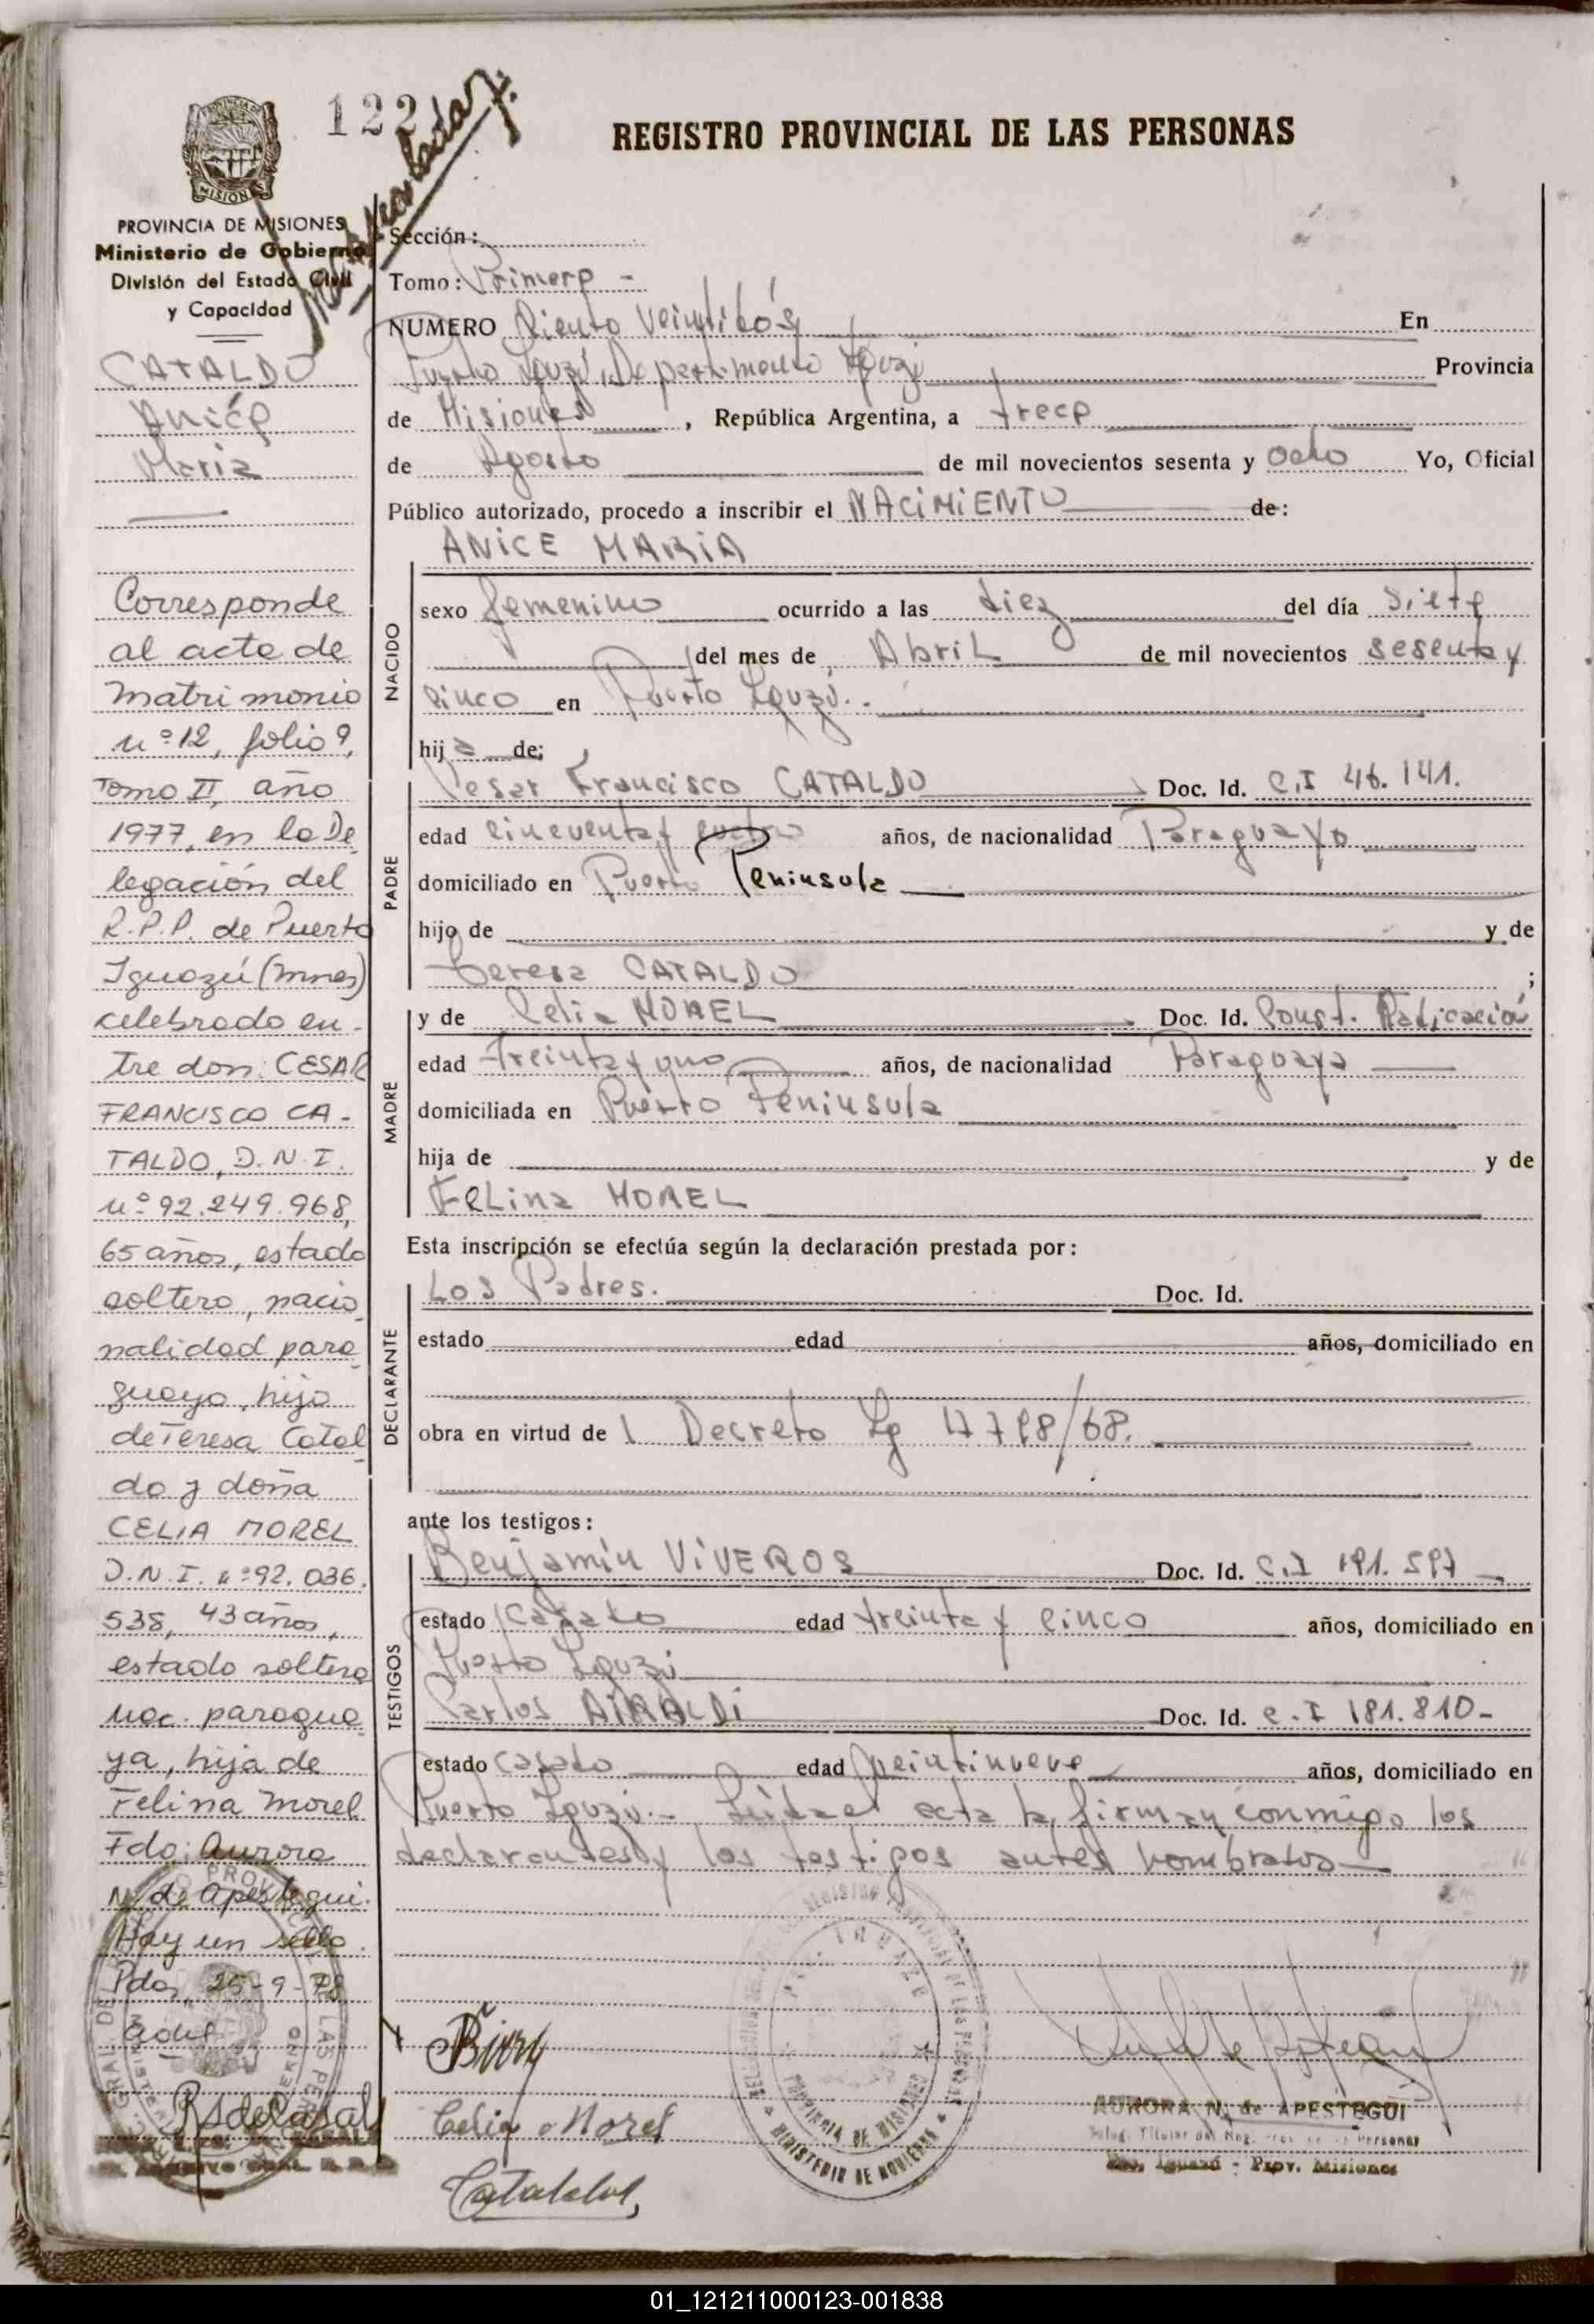 122
REGISTRO PROVINCIAL DE LAS PERSONAS
MISIONES
PROVINCIA DE MISIONES
Ministerio de Gobierno
División del Estado Civil
y Capacidad
CATALDO
Anice
Maria
Corresponde
al acta de
matrimonio
nº 12, folio 9,
Tomo II, año
1977, en la De
legación del
R.P.P. de Puerto
Iguazú (Mnes)
celebrado en-
tre don: CESAR
FRANCISCO CA-
TALDO, D.N.I.
nº 92.249.968,
65 años, estado
soltero, nacio
nalidad para
guayo, hijo
de Teresa Catal
do y doña
CELIA MOREL
D.N.I. nº 92.036.
538, 43 años,
estado soltera
nac. paragua
ya, hija de
Felina Morel
Fdo: Aurora
N. de Apestegui.
Hay un sello.
Pdas, 25-9-78
Sección:
Tomo: Primero -
NUMERO Ciento Veintidós En
Puerto Iguazú, Departamento Iguazú Provincia
de Misiones, República Argentina, a trece
de Agosto de mil novecientos sesenta y ocho Yo, Oficial
Público autorizado, procedo a inscribir el NACIMIENTO de:
ANICE MARIA
NACIDO
sexo femenino ocurrido a las diez del día siete
del mes de Abril de mil novecientos sesenta y
cinco en Puerto Iguazú.
hija de:
PADRE
Cesar Francisco CATALDO Doc. Id. C.I 46.141.
edad cincuenta y cuatro años, de nacionalidad Paraguayo
domiciliado en Puerto Peninsula
hijo de y de
Teresa CATALDO ;
MADRE
y de Celia MOREL Doc. Id. Const. Radicación
edad treinta y uno años, de nacionalidad Paraguaya
domiciliada en Puerto Peninsula
hija de y de
Felina MOREL
Esta inscripción se efectúa según la declaración prestada por:
DECLARANTE
Los Padres. Doc. Id.
estado edad años, domiciliado en
obra en virtud de Decreto Ley 17798/68.
ante los testigos:
TESTIGOS
Benjamín VIVEROS Doc. Id. C.I 191.597
estado Casado edad treinta y cinco años, domiciliado en
Puerto Iguazú
Carlos AIRALDI Doc. Id. C.I 181.810-
estado casado edad veintinueve años, domiciliado en
Puerto Iguazú.- Leida el acta la firman conmigo los
declarantes y los testigos antes nombrados
Celia Morel
AURORA N. de APESTEGUI
Deleg. Titular del Reg. Prov. de las Personas
Pto. Iguazú - Prov. Misiones
PROVINCIA DE MISIONES
MINISTERIO DE GOBIERNO
01_121211000123-001838